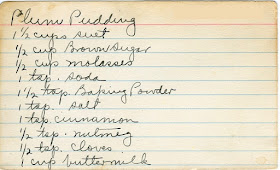 Plum Pudding
1 1/2 cups suet
1/2 cup Brown sugar
1/2 cup molasses
1 tsp. soda
1 1/2 tsp. Baking Powder
1 tsp. salt
1 tsp cinnamon
1/2 tsp. nutmeg
1/2 tsp. cloves
1 cup buttermilk